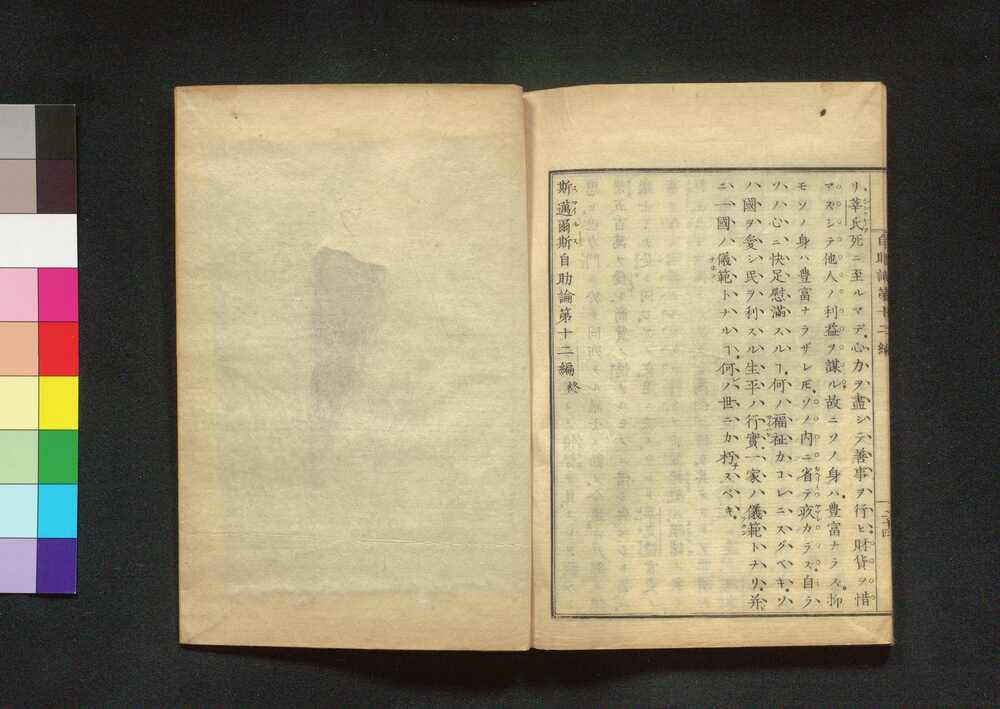 自助論第十二編
リ莘氏死ニ至ルマデ心力ヲ盡シテ善事ヲ行ヒ財貨ヲ惜
マズシテ他人ノ利益ヲ謀ル故ニソノ身ハ豊富ナラズ抑
モソノ身ハ豊富ナラザレ𪜈ソノ内ニ省テ疚カラズ自ラ
ソノ心ニ快足慰滿スルヿ何ノ福祉カコレニスグベキソ
ノ國ヲ愛シ民ヲ利スル生平ノ行實一家ノ儀範トナリ并
ニ一國ノ儀範トナルヿ何ノ世ニカ朽スベキ
斯邁爾斯自助論第十二編 終